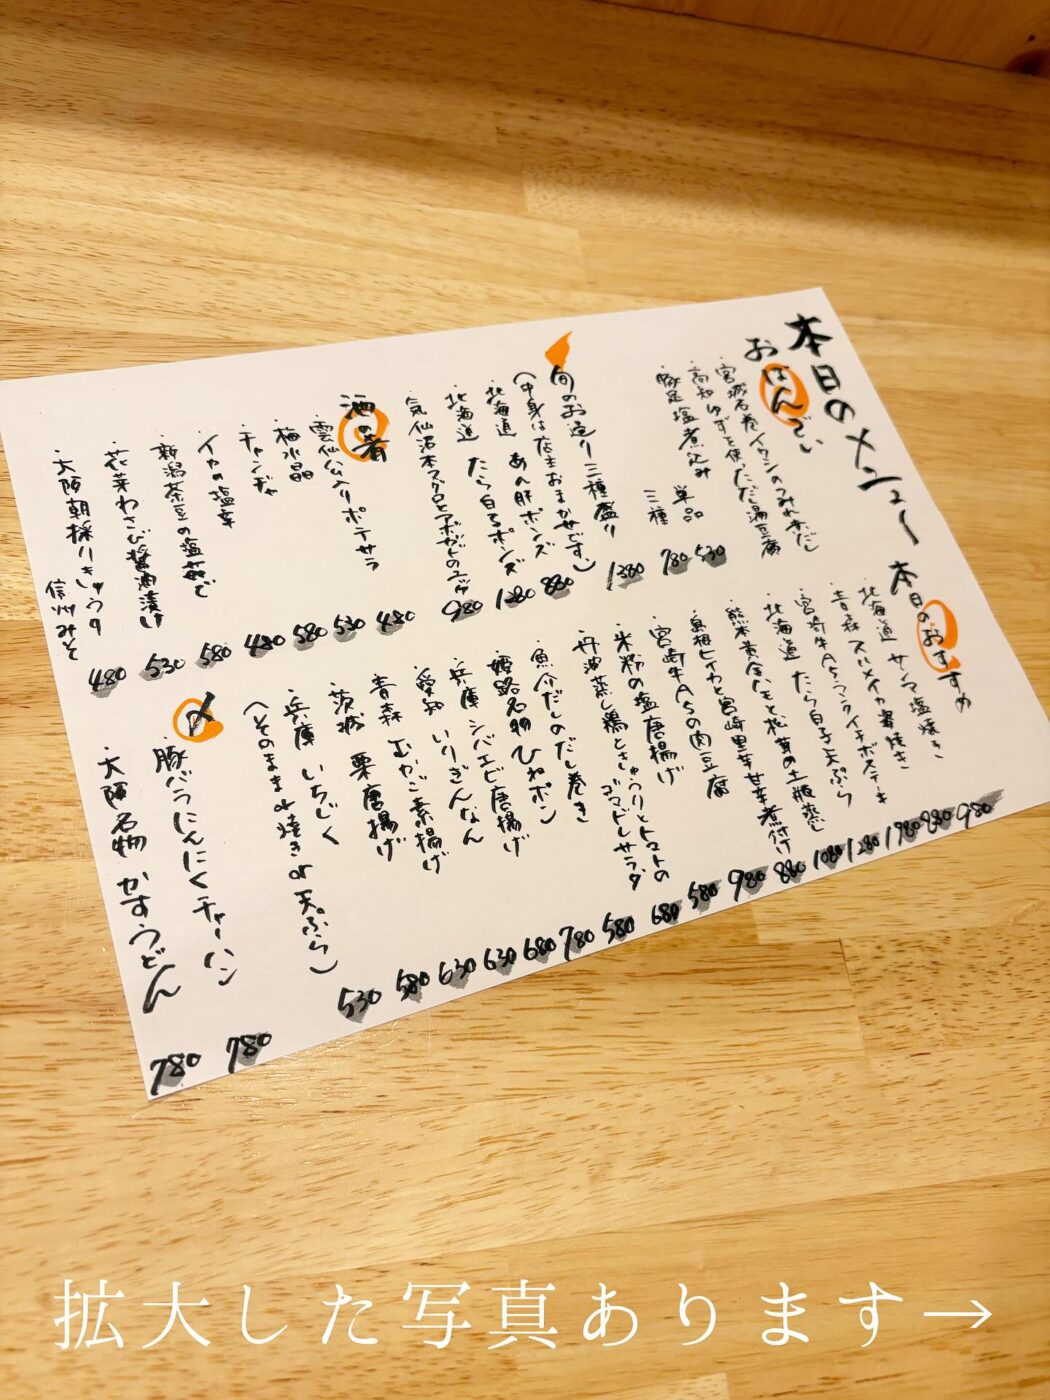 本日のメニュー
おばんざい
・宮城石巻イワシのつみれおだし
・高知ゆずを使っただし湯豆腐
・豚足塩煮込み
単品 530
三種 780
旬のお造り三種盛り 1380
(中身は店主おまかせです。)
・北海道 あん肝ポンズ 880
・北海道 たら白子ポンズ 1280
・気仙沼本マグロとアボカドのユッケ 980
酒の肴
・雲仙ハム入りポテサラ 480
・梅水晶 530
・チャンヂャ 580
・イカの塩辛 480
・新潟茶豆の塩茹で 580
・花芽わさび醤油漬け 530
・大阪朝採りきゅうり 信州みそ 480
本日のおすすめ
・北海道 サンマ塩焼き 980
・青森 スルメイカ一夜焼き 880
・宮崎牛A5ランクイチボステーキ 1980
・北海道 たら白子天ぷら 1280
・熊本黄金ハモと松茸の土瓶蒸し 1080
・島根ヒイカと宮崎里芋甘辛煮付け 880
・宮崎牛A5の肉豆腐 980
・米粉の塩唐揚げ 580
・丹波蒸し鶏ときゅうりとトマトのゴマドレサラダ 680
・魚介だしのだし巻き 580
・姫路名物ひねポン 780
・兵庫 シバエビ唐揚げ 680
・愛知 いりぎんなん 630
・青森 むかご素揚げ 630
・茨城 栗唐揚げ 580
・兵庫 いちじく 530
(そのままor焼きor天ぷら)
〆
・豚バラにんにくチャーハン 780
・大阪名物 かすうどん 780
拡大した写真あります→